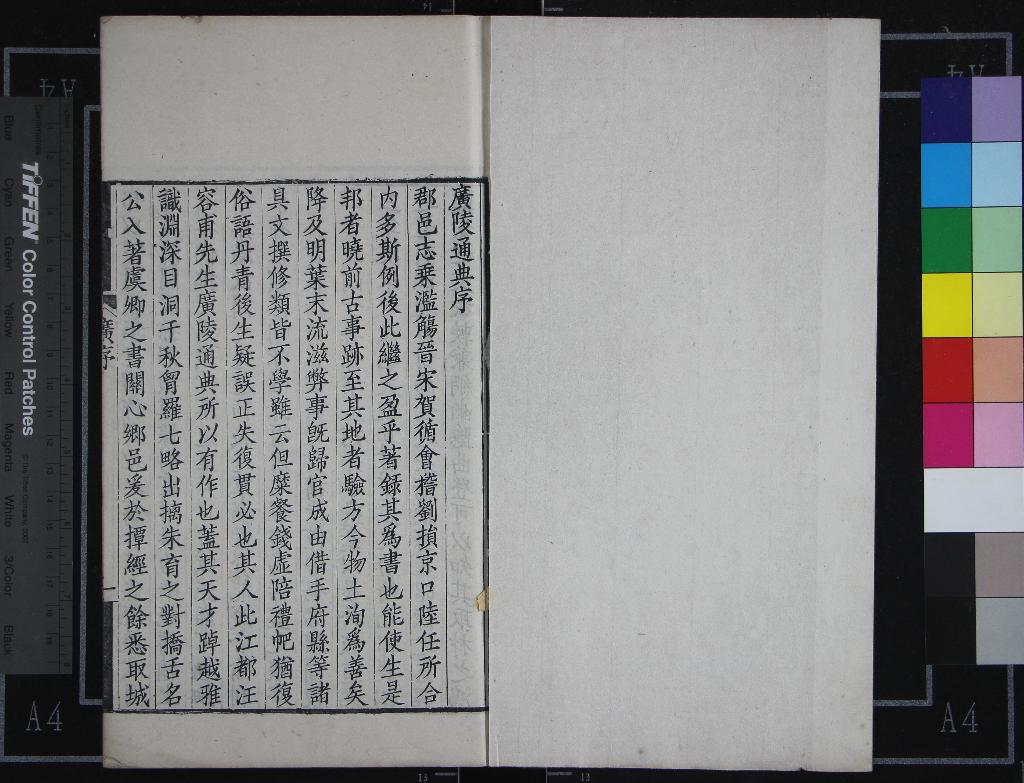 廣陵通典序
郡邑志乘濫觴晉宋賀循會稽劉損京口陸任所合
内多斯例後此繼之盈乎著錄其爲書也能使生是
邦者曉前古事跡至其地者驗方今物土洵爲善矣
降及明葉末流滋弊事旣歸官成由借手府縣等諸
具文撰修類皆不學雖云但糜餐錢虛陪禮帊猶復
俗語丹青後生疑誤正失復貫必也其人此江都汪
容甫先生廣陵通典所以有作也蓋其天才踔越雅
識淵深目洞千秋胷羅七略出摛朱育之對撟舌名
公入著虞卿之書關心鄉邑爰於撢經之餘悉取城
廣序
一
TIFFEN Color Control Patches
Blue Cyan Green Yellow Red Magenta White 3/Color Black
Centimetres
A4
A4
A4
A4
13
13
14